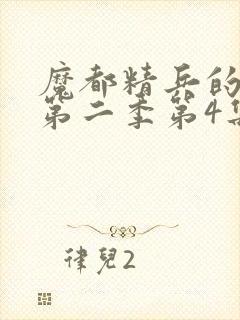 魔都精兵的
第二季第4集
律兒2